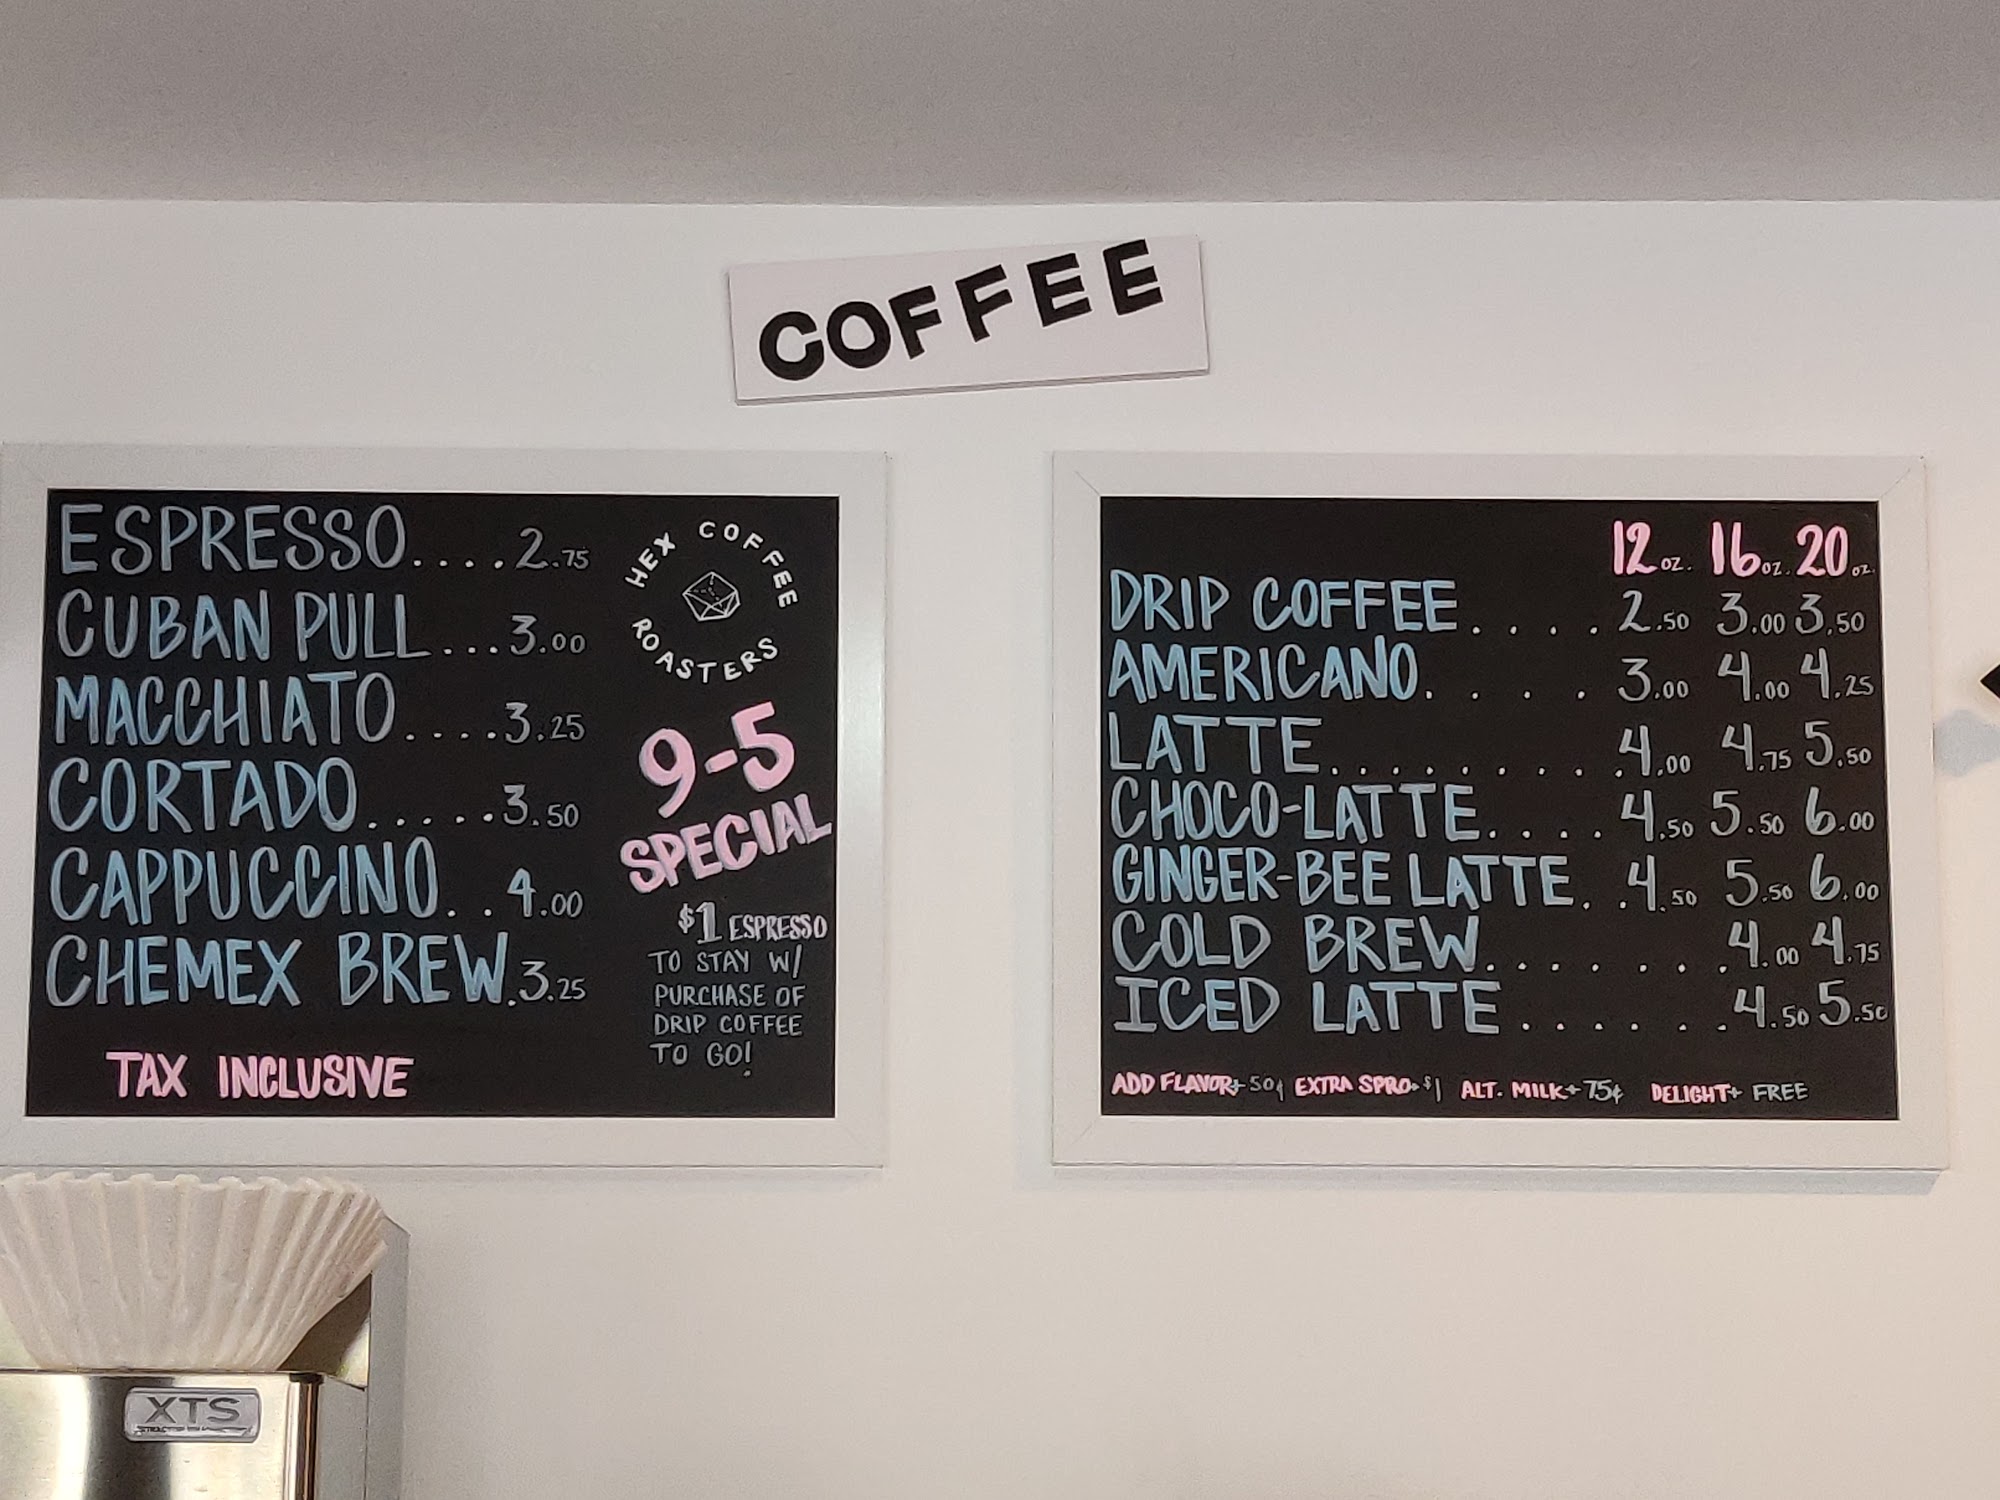 COFFEE
ESPRESSO....2.75
CUBAN PULL...3.00
MACCHIATO....3.25
CORTADO.....3.50
CAPPUCCINO..4.00
CHEMEX BREW.3.25
TAX INCLUSIVE
HEX COFFEE
ROASTERS
9-5
SPECIAL
$1 ESPRESSO
TO STAY W/
PURCHASE OF
DRIP COFFEE
TO GO!
12 OZ. 16 OZ. 20 OZ.
DRIP COFFEE.... 2.50 3.00 3.50
AMERICANO.... 3.00 4.00 4.25
LATTE......... 4.00 4.75 5.50
CHOCO-LATTE.... 4.50 5.50 6.00
GINGER-BEE LATTE... 4.50 5.50 6.00
COLD BREW....... 4.00 4.75
ICED LATTE....... 4.50 5.50
ADD FLAVOR+ 50¢ EXTRA SPRO+ $1 ALT. MILK+ 75¢ DELIGHT+ FREE
XTS